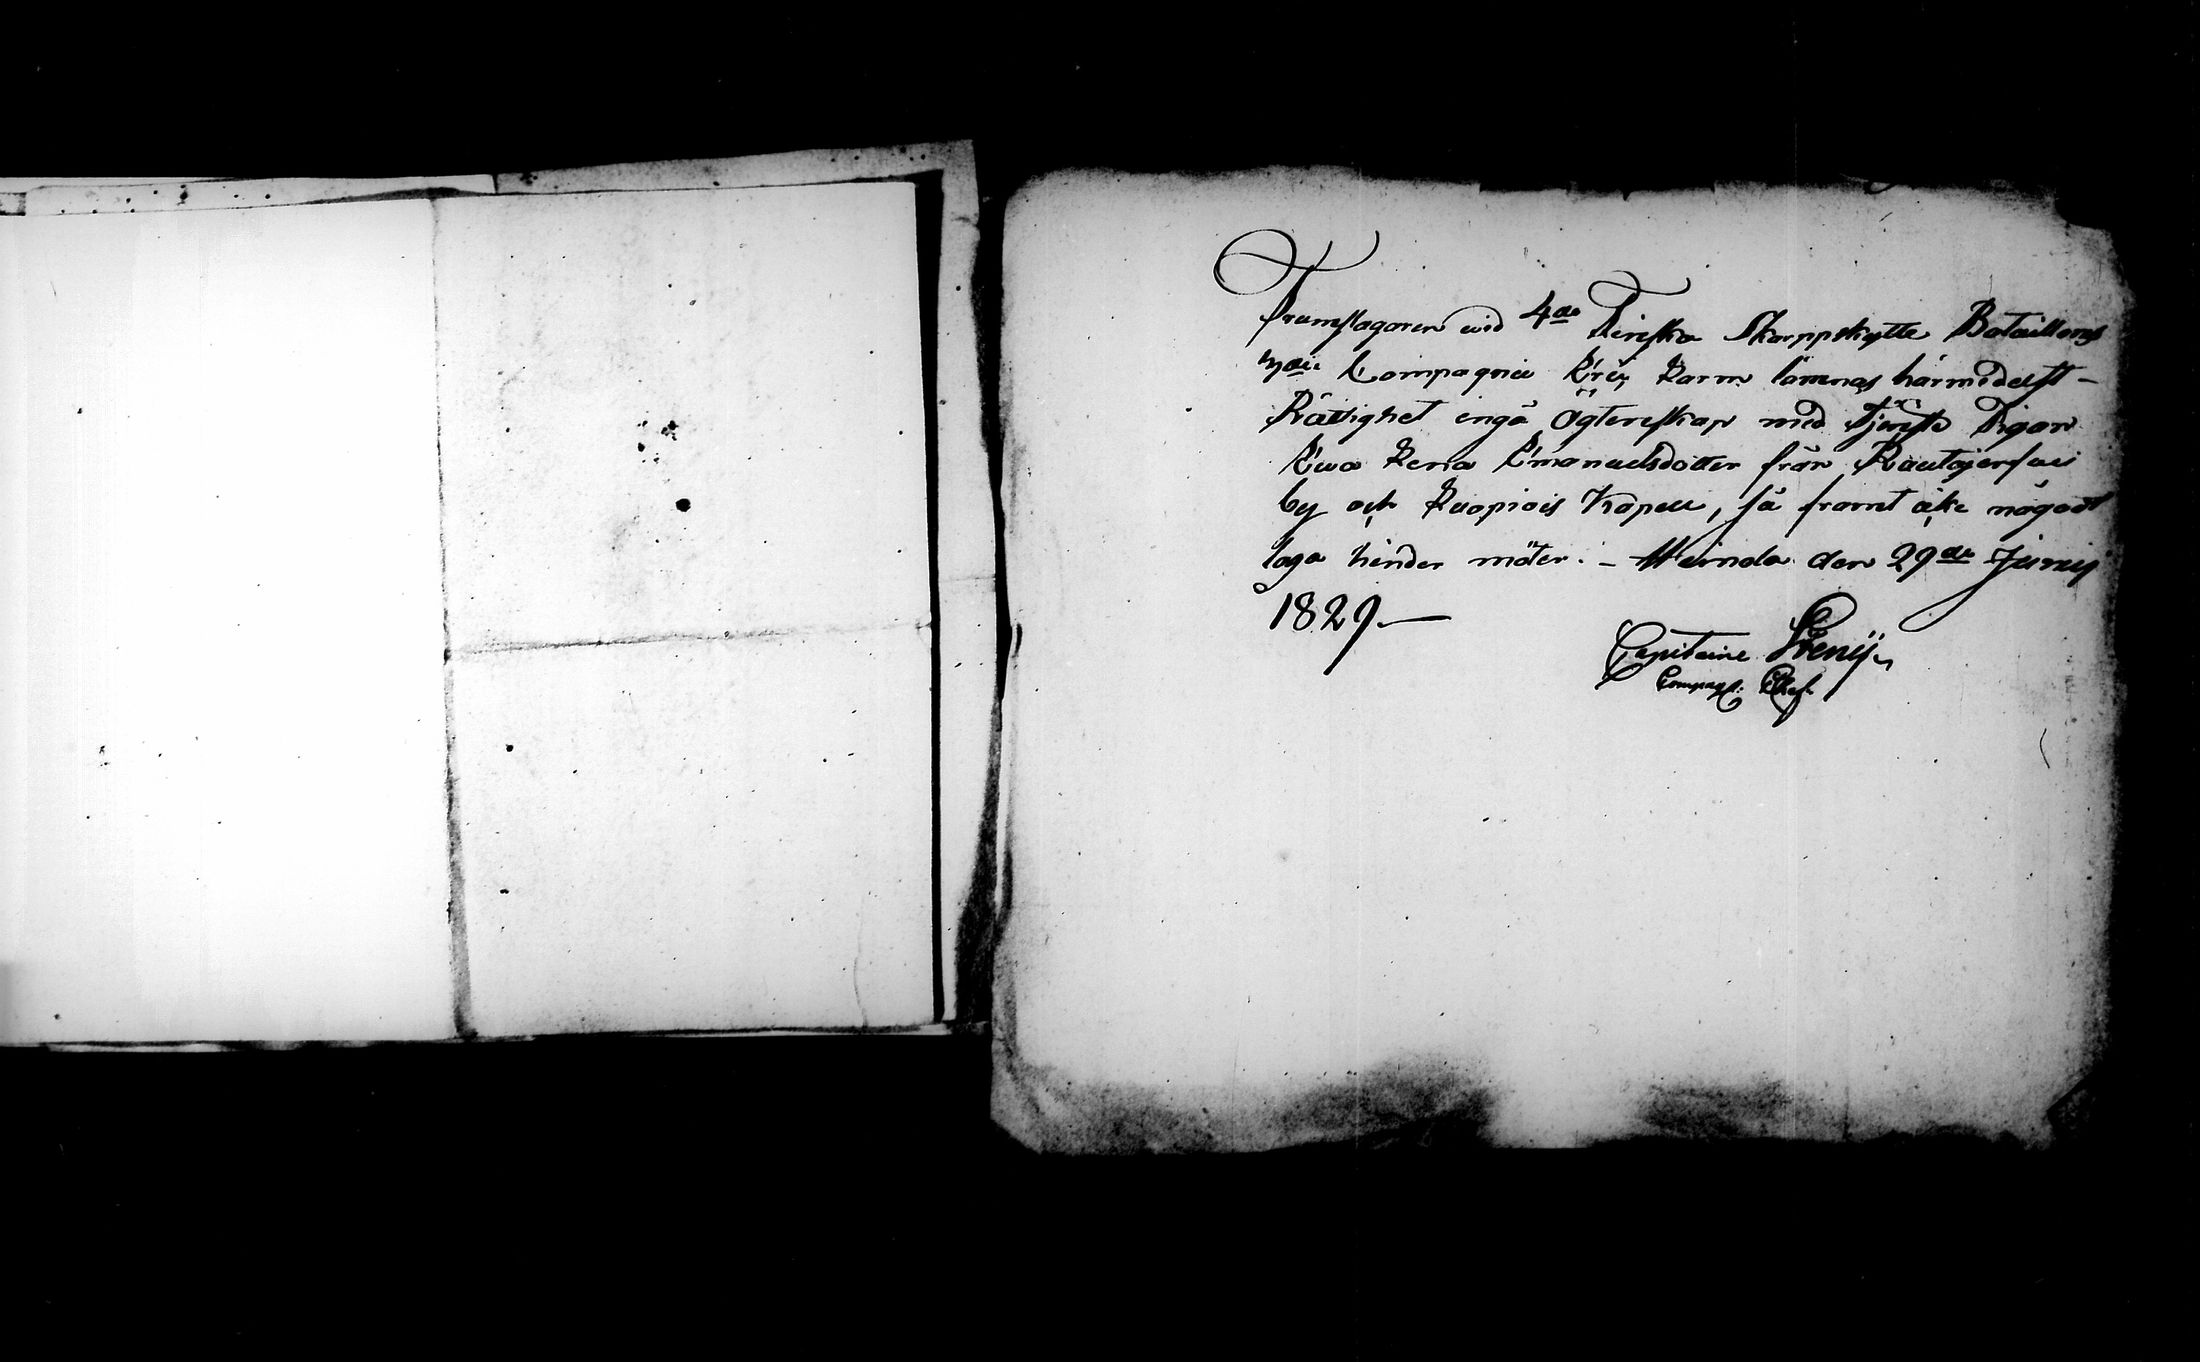 Trumslagaren wid 4de Finska Skarppskytte Bataillons
Compagnie Eric Karm lämnas härmedelst –
Rättighet ingå Ägtenskap med Tjenste Pigan
Ewa Lena Emanuelsdotter från Rautajerfwi
by och Kuopiois Kapell, så framt icke någodt
laga hinder möter. – Heinola den 29de Junij
1829 –
Capitaine
Compag: Chef